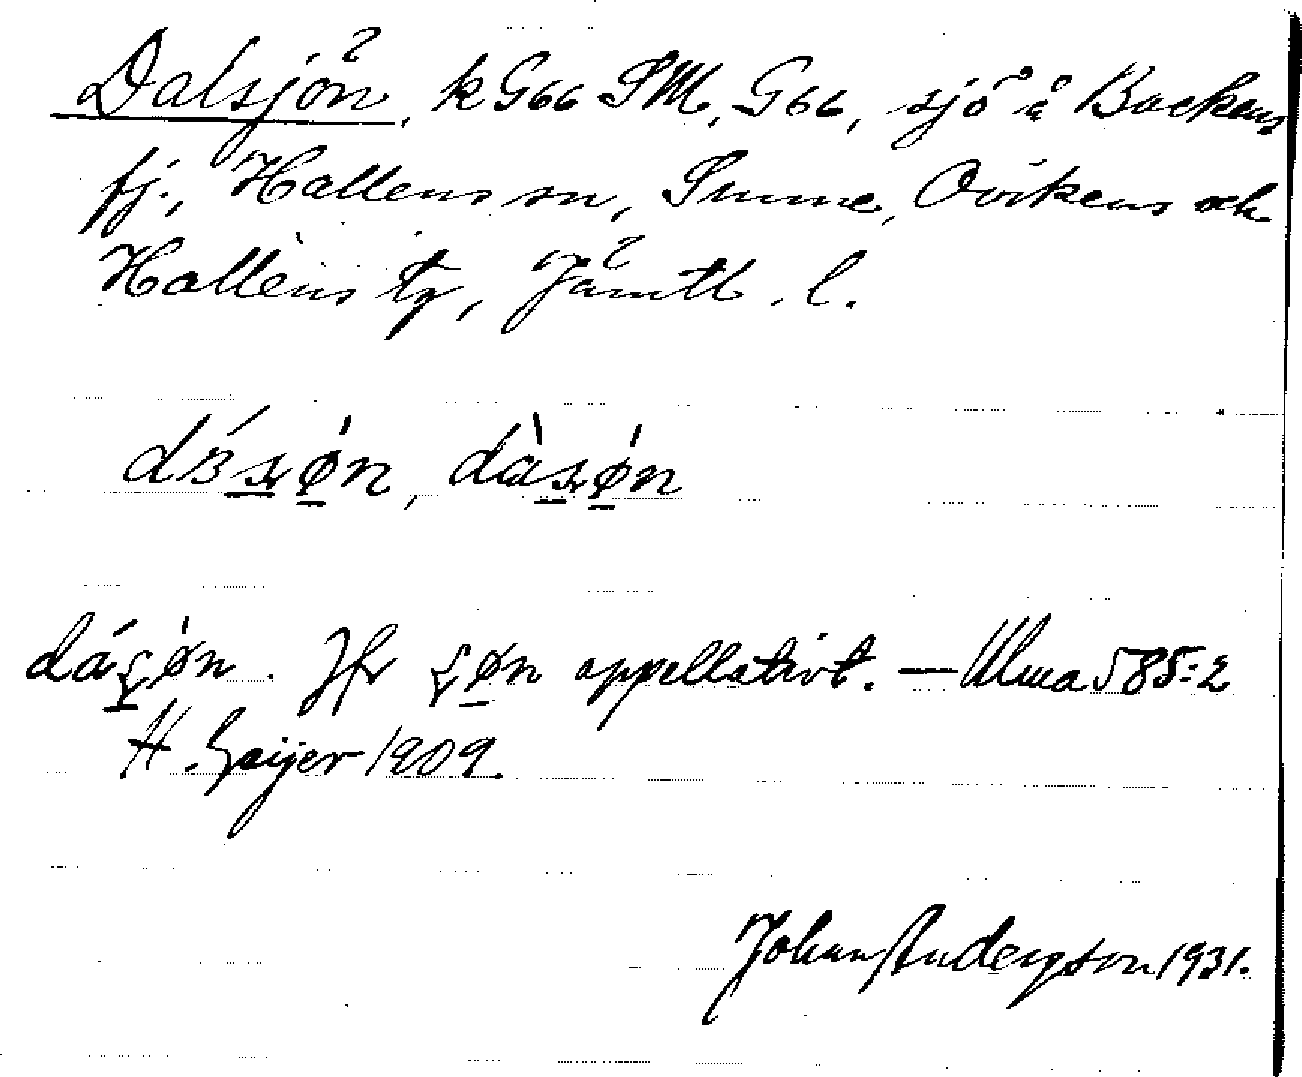 Dalsjön, k G66 SM, G66, sjö å Backens
fj., Hallens sn, Sunne, Ovikens och
Hallens tg, Jämtl. l.
dásøn, dàsøn
dáʂøn. Jfr ʂøn appellativt. — Ulma 585:2
H. Geijer 1909.
Johan Anderzson 1931.